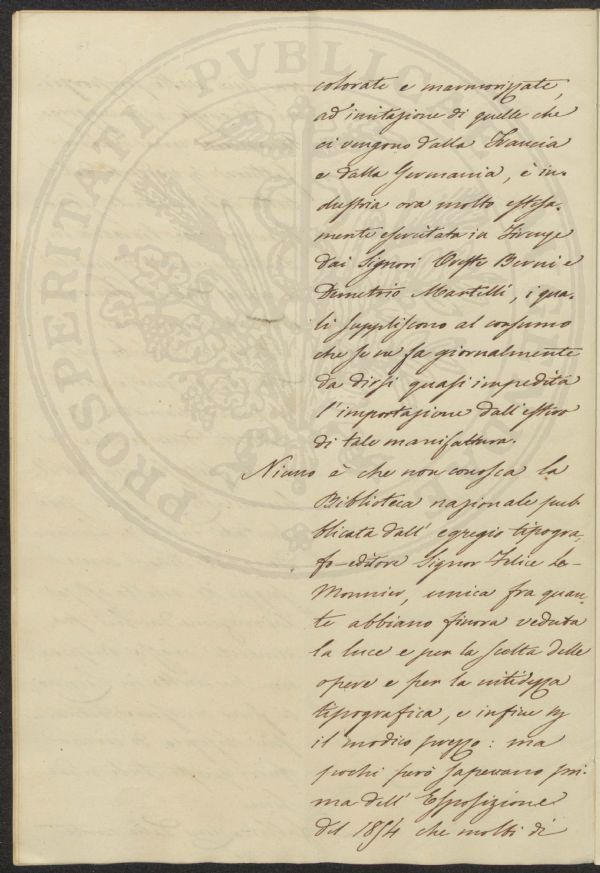 PROSPERITATI PUBLICAE
colorate e marmorizzate,
ad imitazione di quelle che
ci vengono dalla Francia
e dalla Germania, è in-
dustria ora molto estesa-
mente esercitata in Firenze
dai Signori Oreste Berni e
Demetrio Martelli, i qua-
li suppliscono al consumo
che se ne fa giornalmente
da dirsi quasi impedita
l'importazione dall'estero
di tale manifattura.
Niuno è che non conosca la
Biblioteca nazionale pub-
blicata dall'egregio tipogra-
fo-editore Signor Felice Le-
Monnier, unica fra quan-
te abbiano finora veduta
la luce e per la scelta delle
opere e per la nitidezza
tipografica, e infine
il modico prezzo: ma
pochi però sapevano pri-
ma dell'Esposizione
del 1854 che molti di